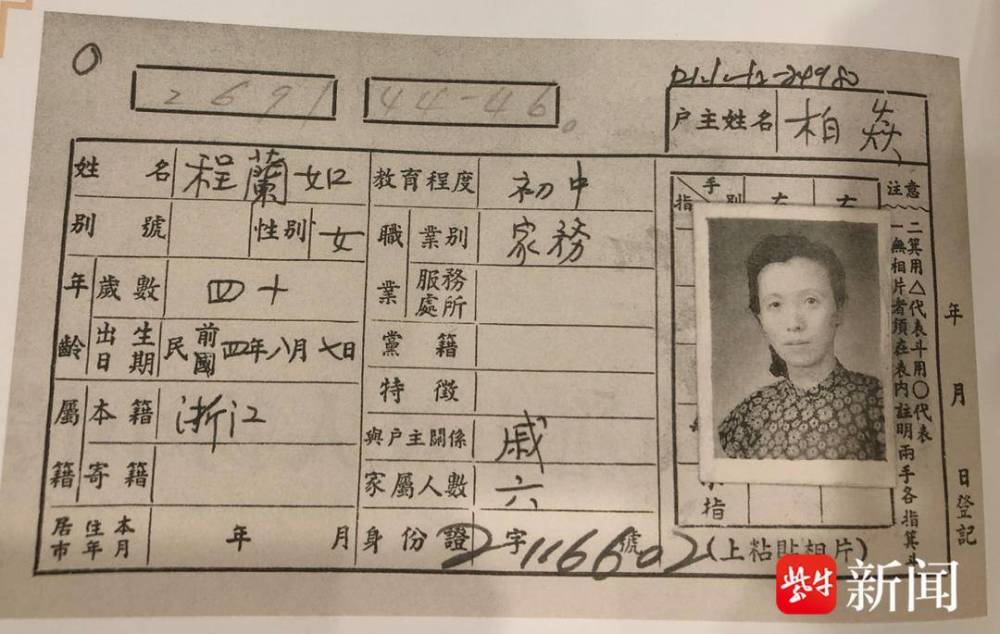 0
2691 44-46
户主姓名 柏焱
姓名 程蘭如 教育程度 初中
别號 性别 女 職業 業别 家務
年齡 歲數 四十 服務處所
出生日期 民國前四年八月七日 黨籍
特徵
屬籍 本籍 浙江 與户主關係 戚
寄籍 家屬人數 六
居住本市年月 年 月 身份證 字 號 2116602
指 手别 左 右
指
(上粘貼相片)
注意
一無相片者須在表内註明兩手各指箕斗
二箕用△代表斗用○代表
年 月 日登記
紫牛新闻